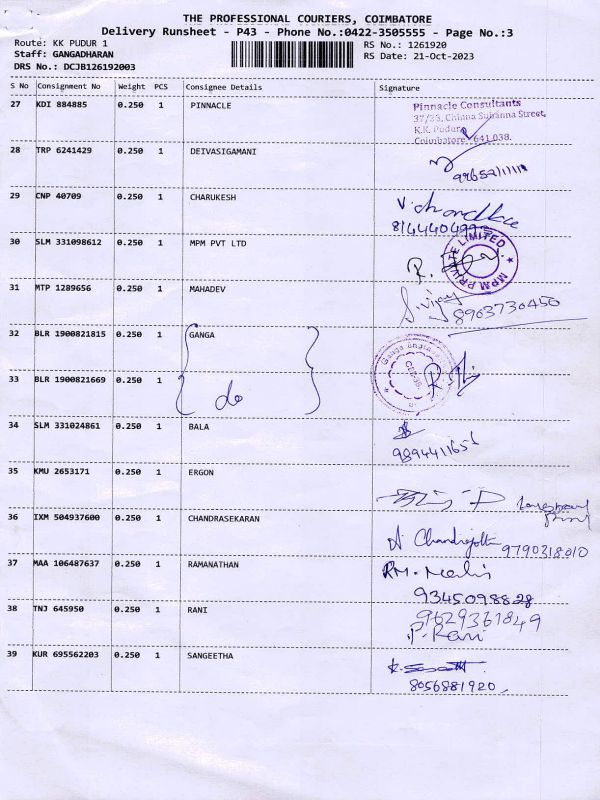 THE PROFESSIONAL COURIERS, COIMBATORE
Delivery Runsheet - P43 - Phone No.:0422-3505555 - Page No.:3
Route: KK PUDUR 1 RS No.: 1261920
Staff: GANGADHARAN RS Date: 21-Oct-2023
DRS No.: DCJB126192003
S No Consignment No Weight PCS Consignee Details Signature
27 KDI 884885 0.250 1 PINNACLE
Pinnacle Consultants
37/33, Chinna Subanna Street,
K.K. Pudur,
Coimbatore - 641 038.
28 TRP 6241429 0.250 1 DEIVASIGAMANI
29 CNP 40709 0.250 1 CHARUKESH
30 SLM 331098612 0.250 1 MPM PVT LTD
MPM PRIVATE LIMITED
31 MTP 1289656 0.250 1 MAHADEV
S. Vijay
8903730450
32 BLR 1900821815 0.250 1 GANGA
33 BLR 1900821669 0.250 1 do
34 SLM 331024861 0.250 1 BALA
9894411656
35 KMU 2653171 0.250 1 ERGON
36 IXM 504937600 0.250 1 CHANDRASEKARAN
9790318010
37 MAA 106487637 0.250 1 RAMANATHAN
9345098828
38 TNJ 645950 0.250 1 RANI
9629361849
P. Rani
39 KUR 695562203 0.250 1 SANGEETHA
8056881920